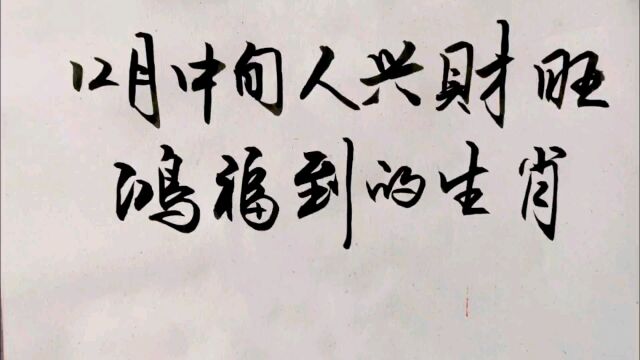 12月中旬人兴財旺
鸿福到的生肖